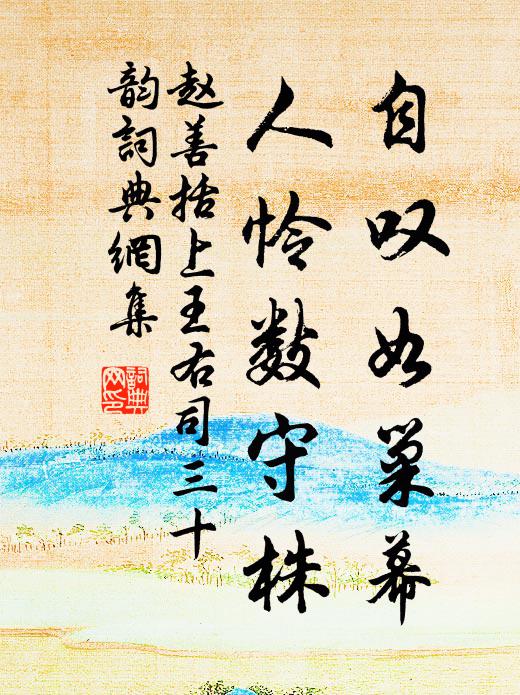 自叹如巢幕
人怜数守株
赵善括上王右司三十
韵词典網集
詞典
网印